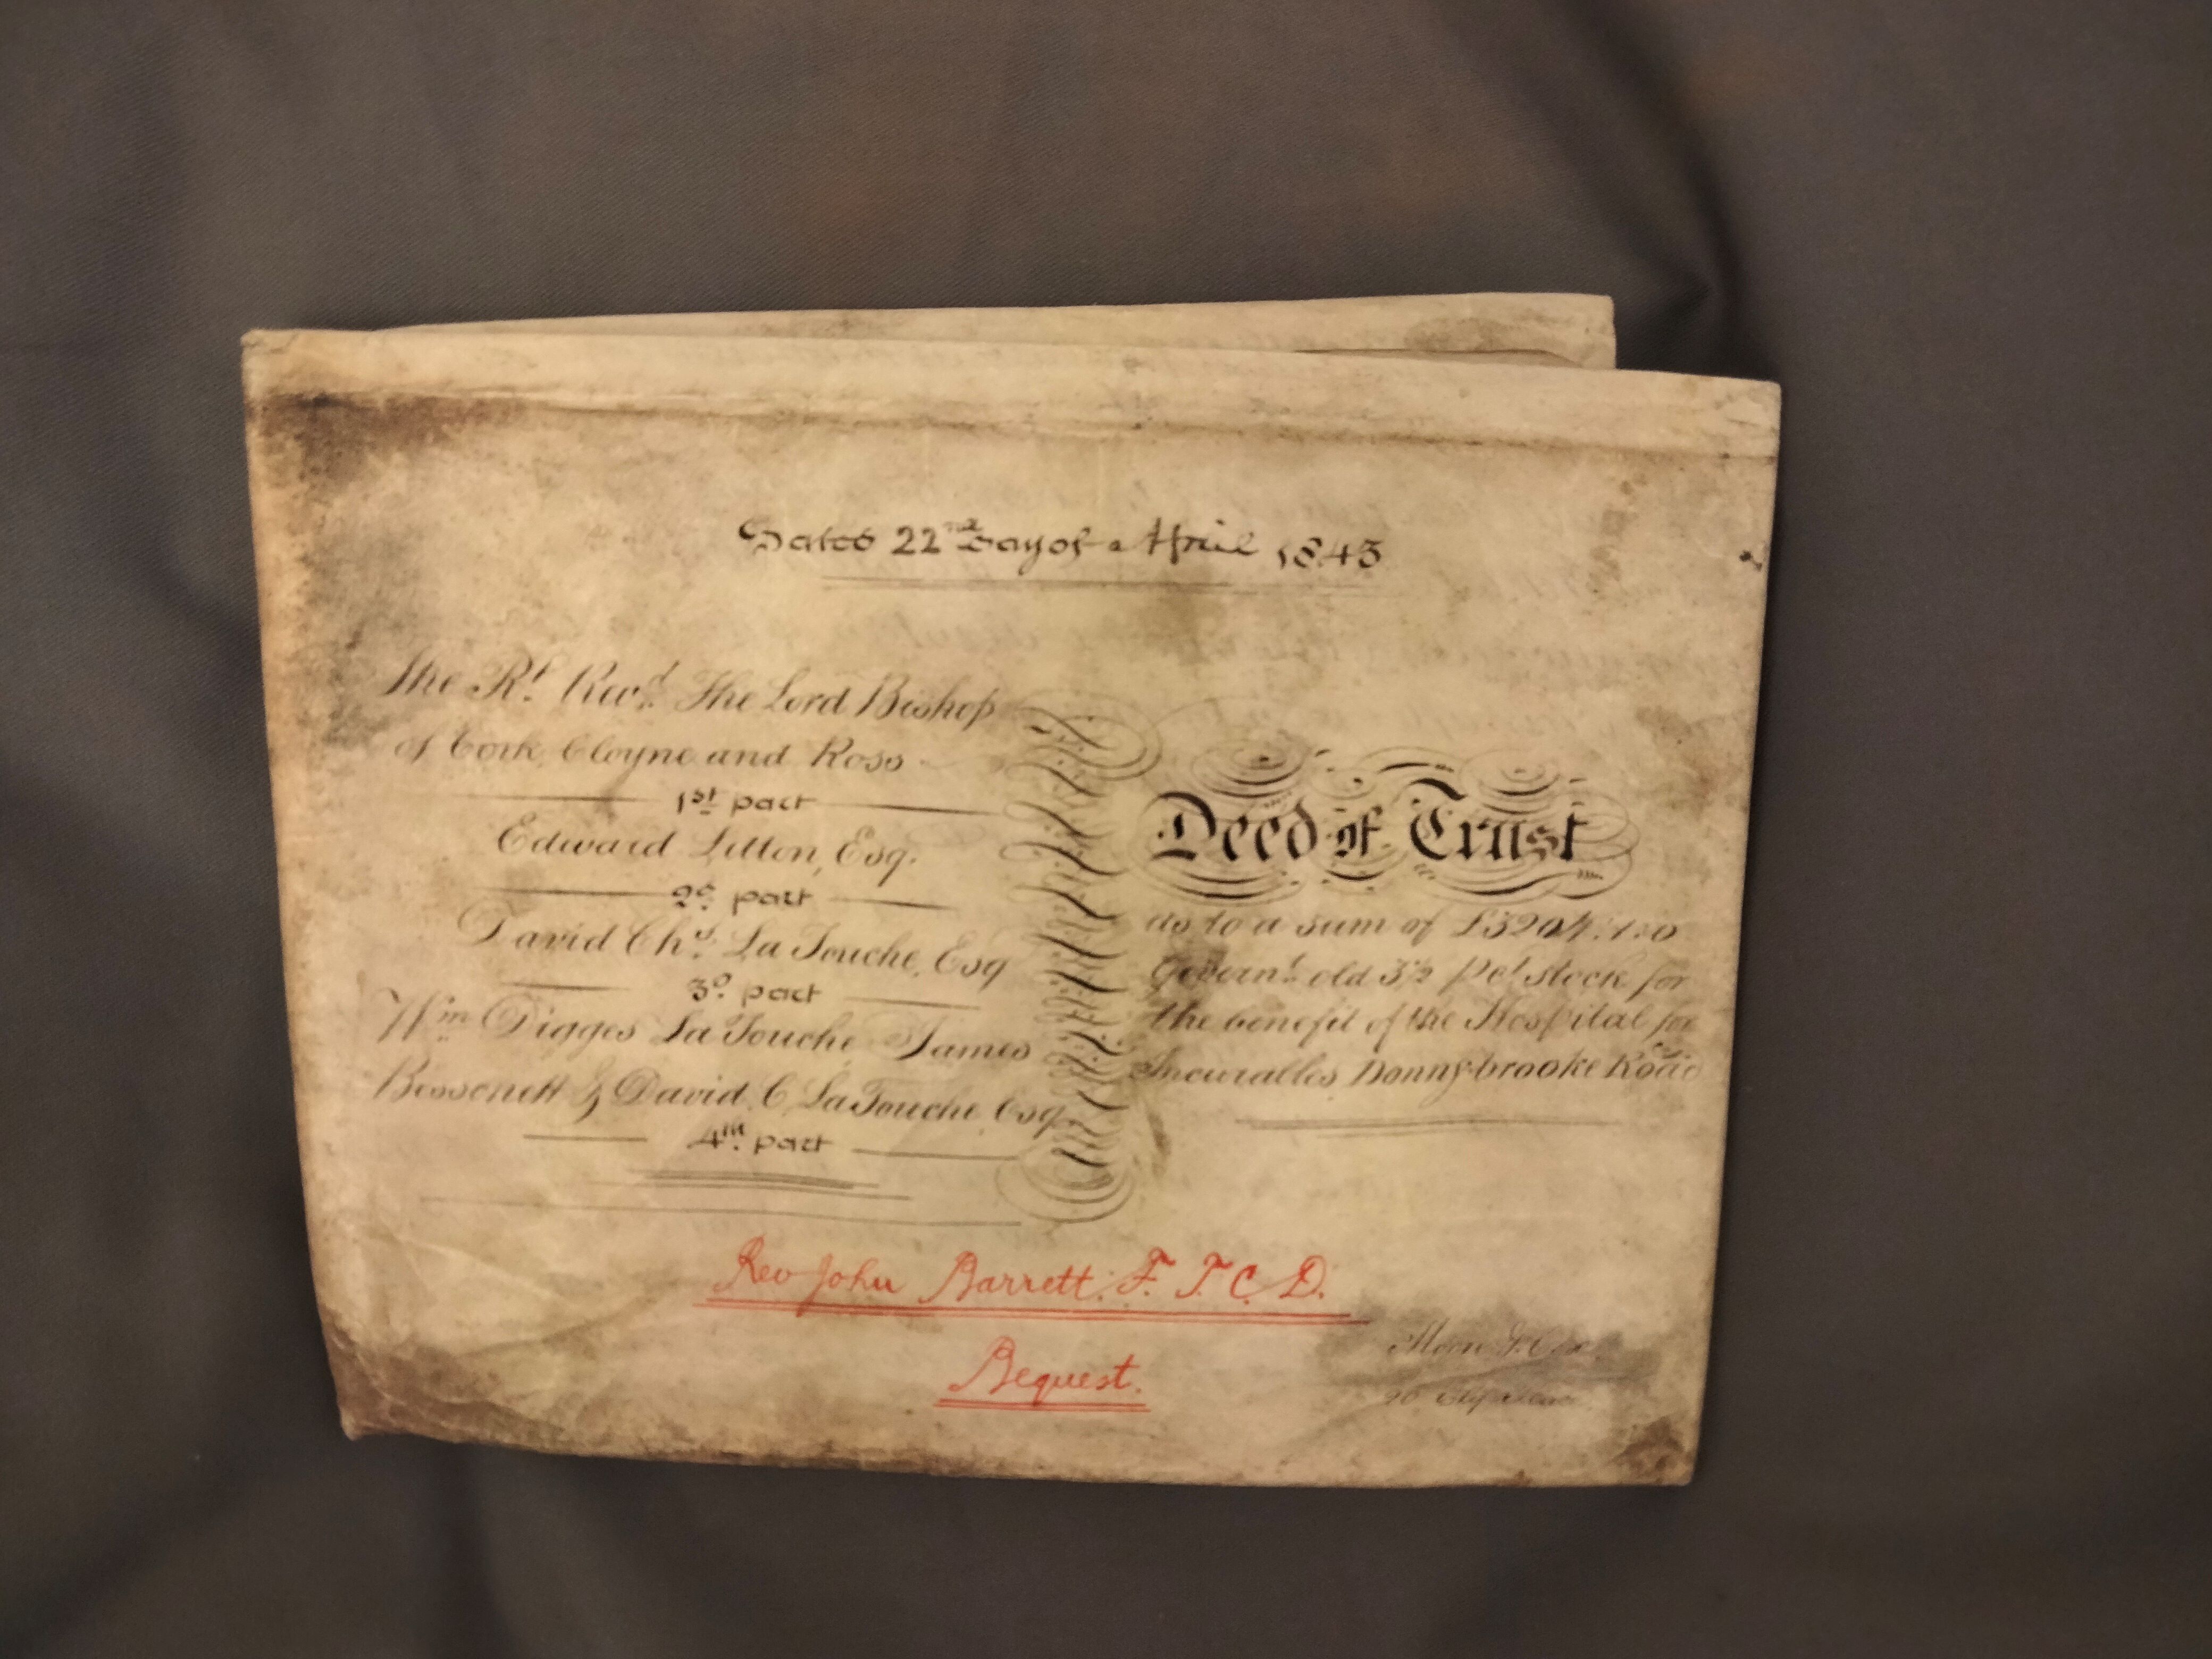 Dated 22nd day of April 1843
The Rt. Revd. The Lord Bishop
of Cork, Cloyne and Ross
1st part
Edward Litton, Esq.
2d. part
David Chs. La Touche, Esq
3d. part
Wm Digges La Touche, James
Bissonett & David C. La Touche Esq.
4th. part
Deed of Trust
as to a sum of £3204:1:0
Governt. old 3½ Pct stock for
the benefit of the Hospital for
Incurables, Donnybrooke Road
Rev John Barrett. F. T. C. D.
Bequest.